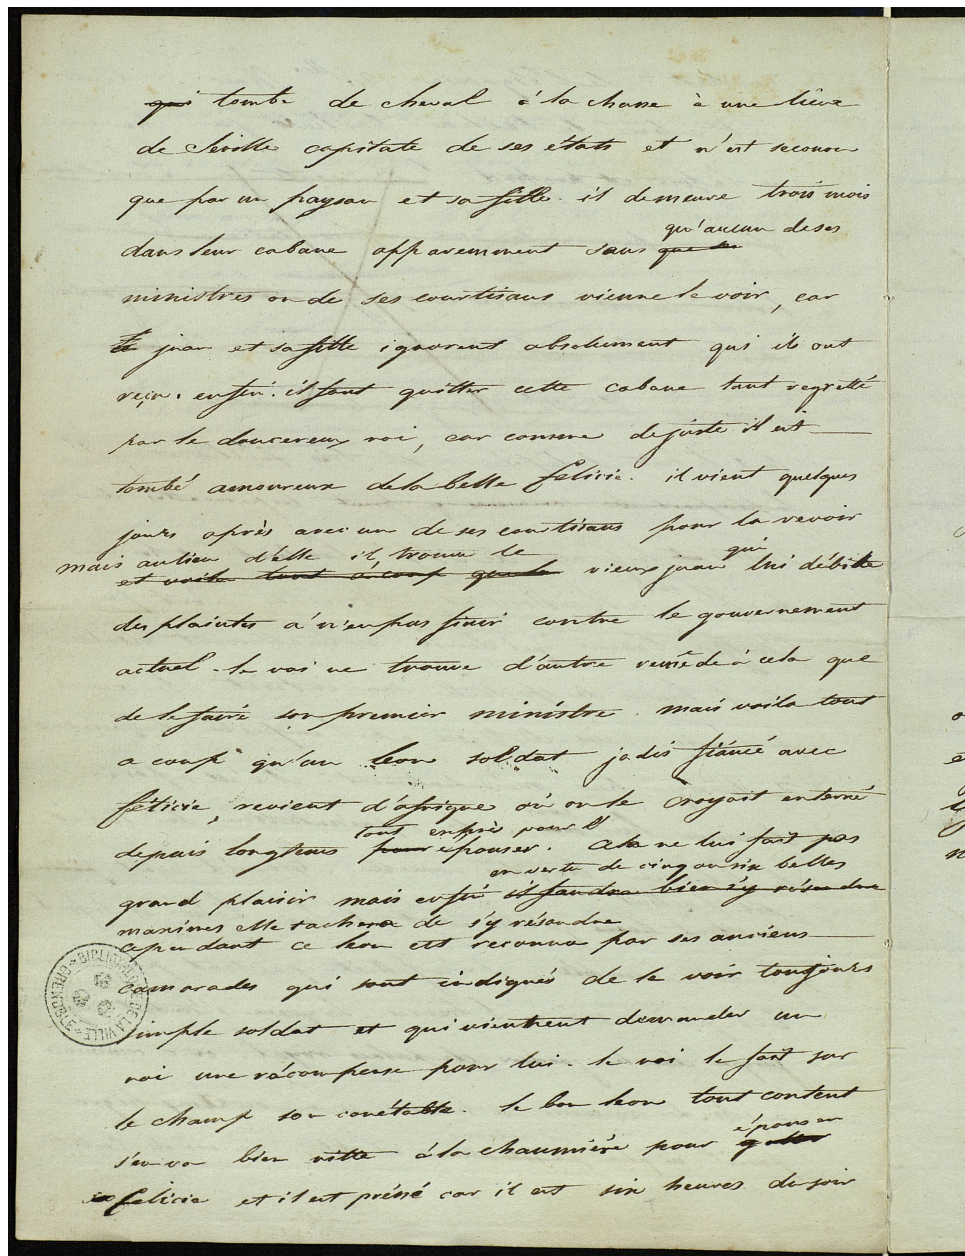 qui tombe de cheval à la chasse à une liéue
de Séville capitale de ses états et n'est secouru
que par un paysan et sa fille. il demeure trois mois
qu'aucun de ses
dans leur cabane apparemment sans que ses
ministres ou de ses courtisans vienne le voir, car
juan et sa fille ignorent absolument qui ils ont
reçu. enfin. il faut quitter cette cabane tant regretté
par le doucereux roi, car comme de juste il est
tombé amoureux de la belle félicie. il vient quelques
jours après avec un de ses courtisans pour la revoir
mais au lieu d'elle il trouve le qui
et voila tout à coup que le vieux juan lui débite
des plaintes à n'en pas finir contre le gouvernement
actuel. le roi ne trouve d'autre remède à cela que
de le faire son premier ministre. mais voila tout
a coup qu'un leon soldat jadis fiancé avec
félicie, revient d'afrique où on le croyait enterré
tout exprès pour l'
depuis longtems pour épouser. cela ne lui fait pas
en vertu de cinq ou six belles
grand plaisir mais enfin il faudra bien s'y résoudre
maximes elle tachera de s'y résoudre
cependant ce leon est reconnu par ses anciens
camarades qui sont indignés de le voir toujours
simple soldat et qui viennent demander au
roi une récompense pour lui. le roi le fait sur
le champ son conétable. le bon leon tout content
épouser
s'en va bien vitte à la chaumière pour
félicie et il est préssé car il est six heures du soir
BIBLIOTHEQUE DE LA VILLE GRENOBLE